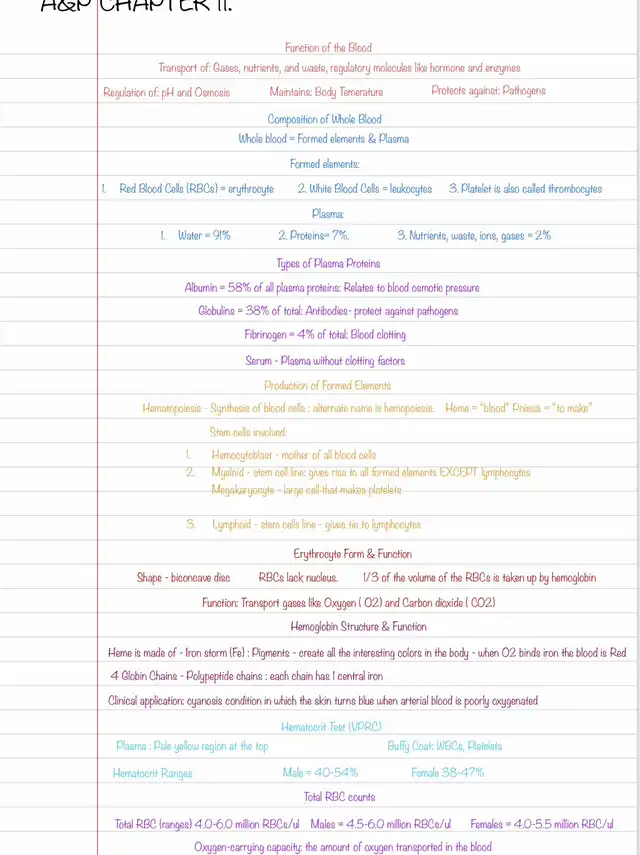 A&P CHAPTER 11.
Function of the Blood
Transport of: Gases, nutrients, and waste, regulatory molecules like hormone and enzymes
Regulation of: pH and Osmosis Maintains: Body Temerature Protects against: Pathogens
Composition of Whole Blood
Whole blood = Formed elements & Plasma
Formed elements:
1. Red Blood Cells (RBCs) = erythrocyte 2. White Blood Cells = leukocytes 3. Platelet is also called thrombocytes
Plasma:
1. Water = 91% 2. Proteins= 7%. 3. Nutrients, waste, ions, gases = 2%
Types of Plasma Proteins
Albumin = 58% of all plasma proteins: Relates to blood osmotic pressure
Globulins = 38% of total: Antibodies- protect against pathogens
Fibrinogen = 4% of total: Blood clotting
Serum - Plasma without clotting factors
Production of Formed Elements
Hematopoiesis - Synthesis of blood cells : alternate name is hemopoiesis. Heme = "blood" Poiesis = "to make"
Stem cells involved:
1. Hemocytoblast - mother of all blood cells
2. Myeloid - stem cell line: gives rise to all formed elements EXCEPT lymphocytes
Megakaryocyte - large cell that makes platelets
3. Lymphoid - stem cells line - gives tis to lymphocytes
Erythrocyte Form & Function
Shape - biconcave disc RBCs lack nucleus. 1/3 of the volume of the RBCs is taken up by hemoglobin
Function: Transport gases like Oxygen ( O2) and Carbon dioxide ( CO2)
Hemoglobin Structure & Function
Heme is made of - Iron storm (Fe) : Pigments - create all the interesting colors in the body - when O2 binds iron the blood is Red
4 Globin Chains - Polypeptide chains : each chain has 1 central iron
Clinical application: cyanosis condition in which the skin turns blue when arterial blood is poorly oxygenated
Hematocrit Test (VPRC)
Plasma : Pale yellow region at the top Buffy Coat: WBCs, Platelets
Hematocrit Ranges Male = 40-54% Female 38-47%
Total RBC counts
Total RBC (ranges) 4.0-6.0 million RBCs/ul Males = 4.5-6.0 million RBCs/ul Females = 4.0-5.5 million RBC/ul
Oxygen-carrying capacity: the amount of oxygen transported in the blood